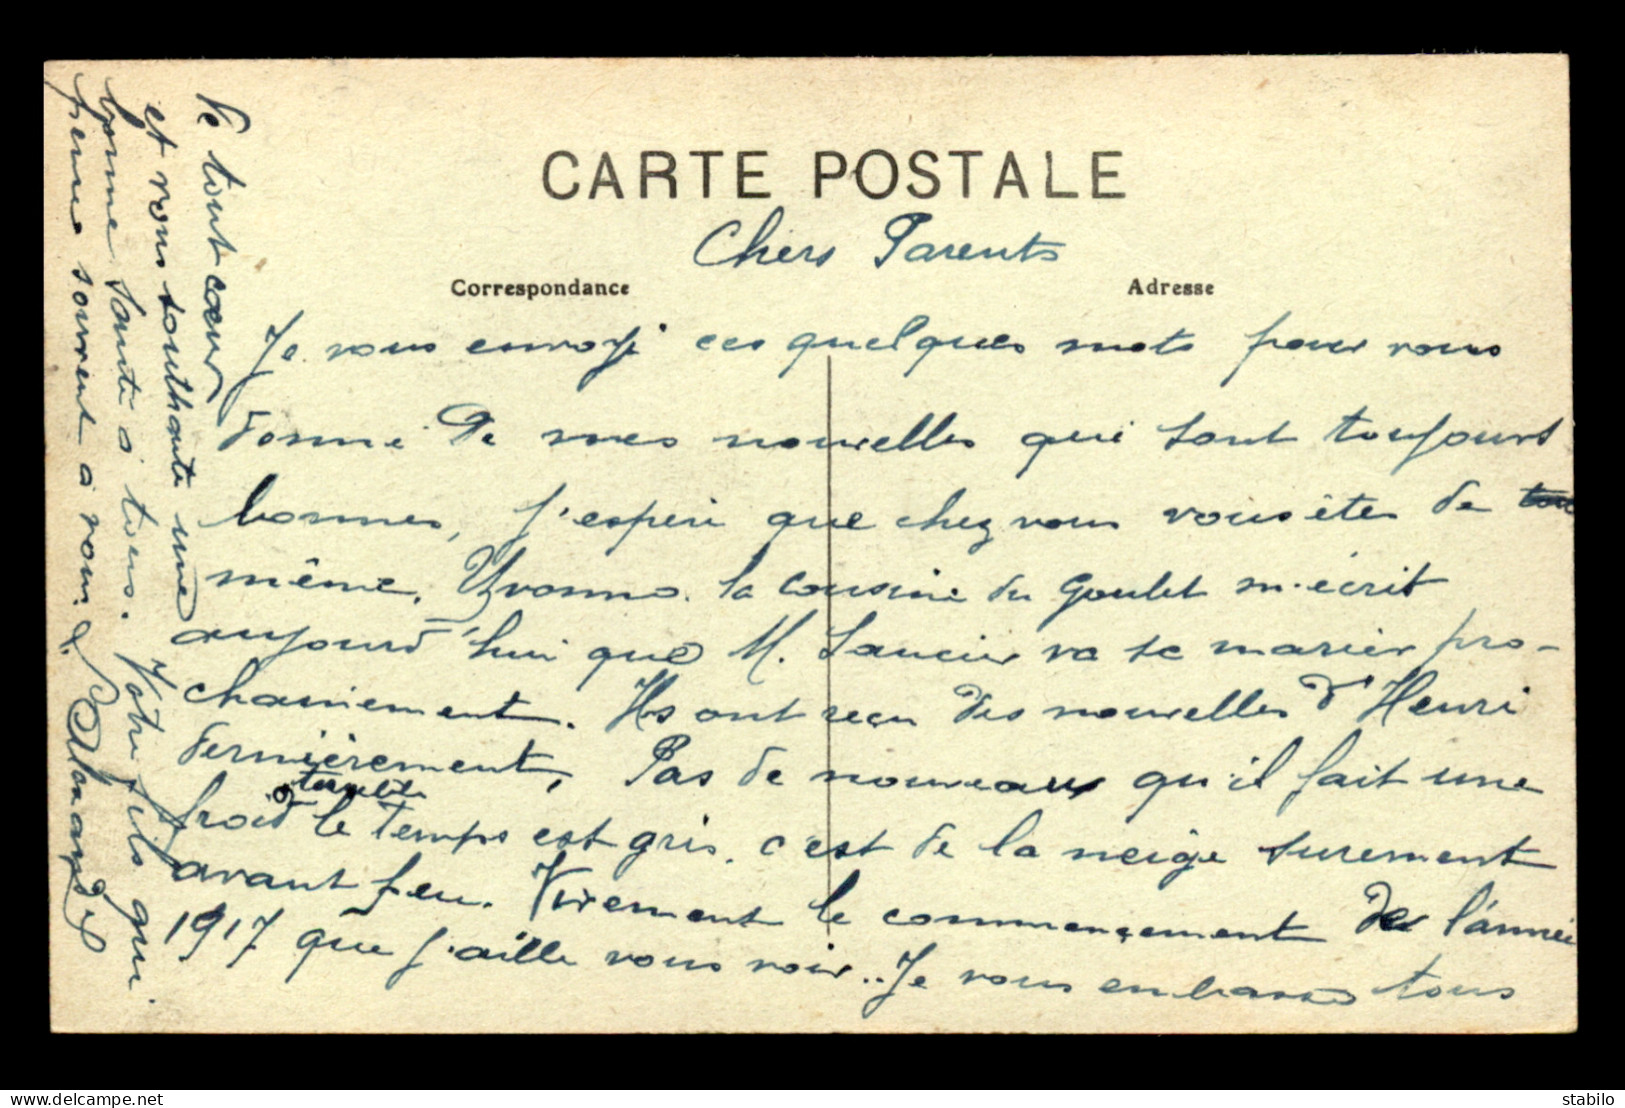 CARTE POSTALE
Chers Parents
Correspondance
Adresse
Je vous envoyi ces quelques mots pour vous
donné de mes nouvelles qui sont toujours
bonnes, j'espère que chez vous vous êtes de
même. Yvonne la cousine du Goulet m'écrit
aujourd'hui que M. Saucier va se marier pro-
chainement. Ils ont reçu des nouvelles d'Henri
dernièrement, Pas de nouveaux qu'il fait une
froid terrible le temps est gris. c'est de la neige surement
avant peu. Vivement le commençement de l'année
1917 que j'aille vous voir.. Je vous embrasse tous
de tout cœur
et vous southaite une
bonne santé à tous. Votre fils qui
pense souvent à vous.
stabilo